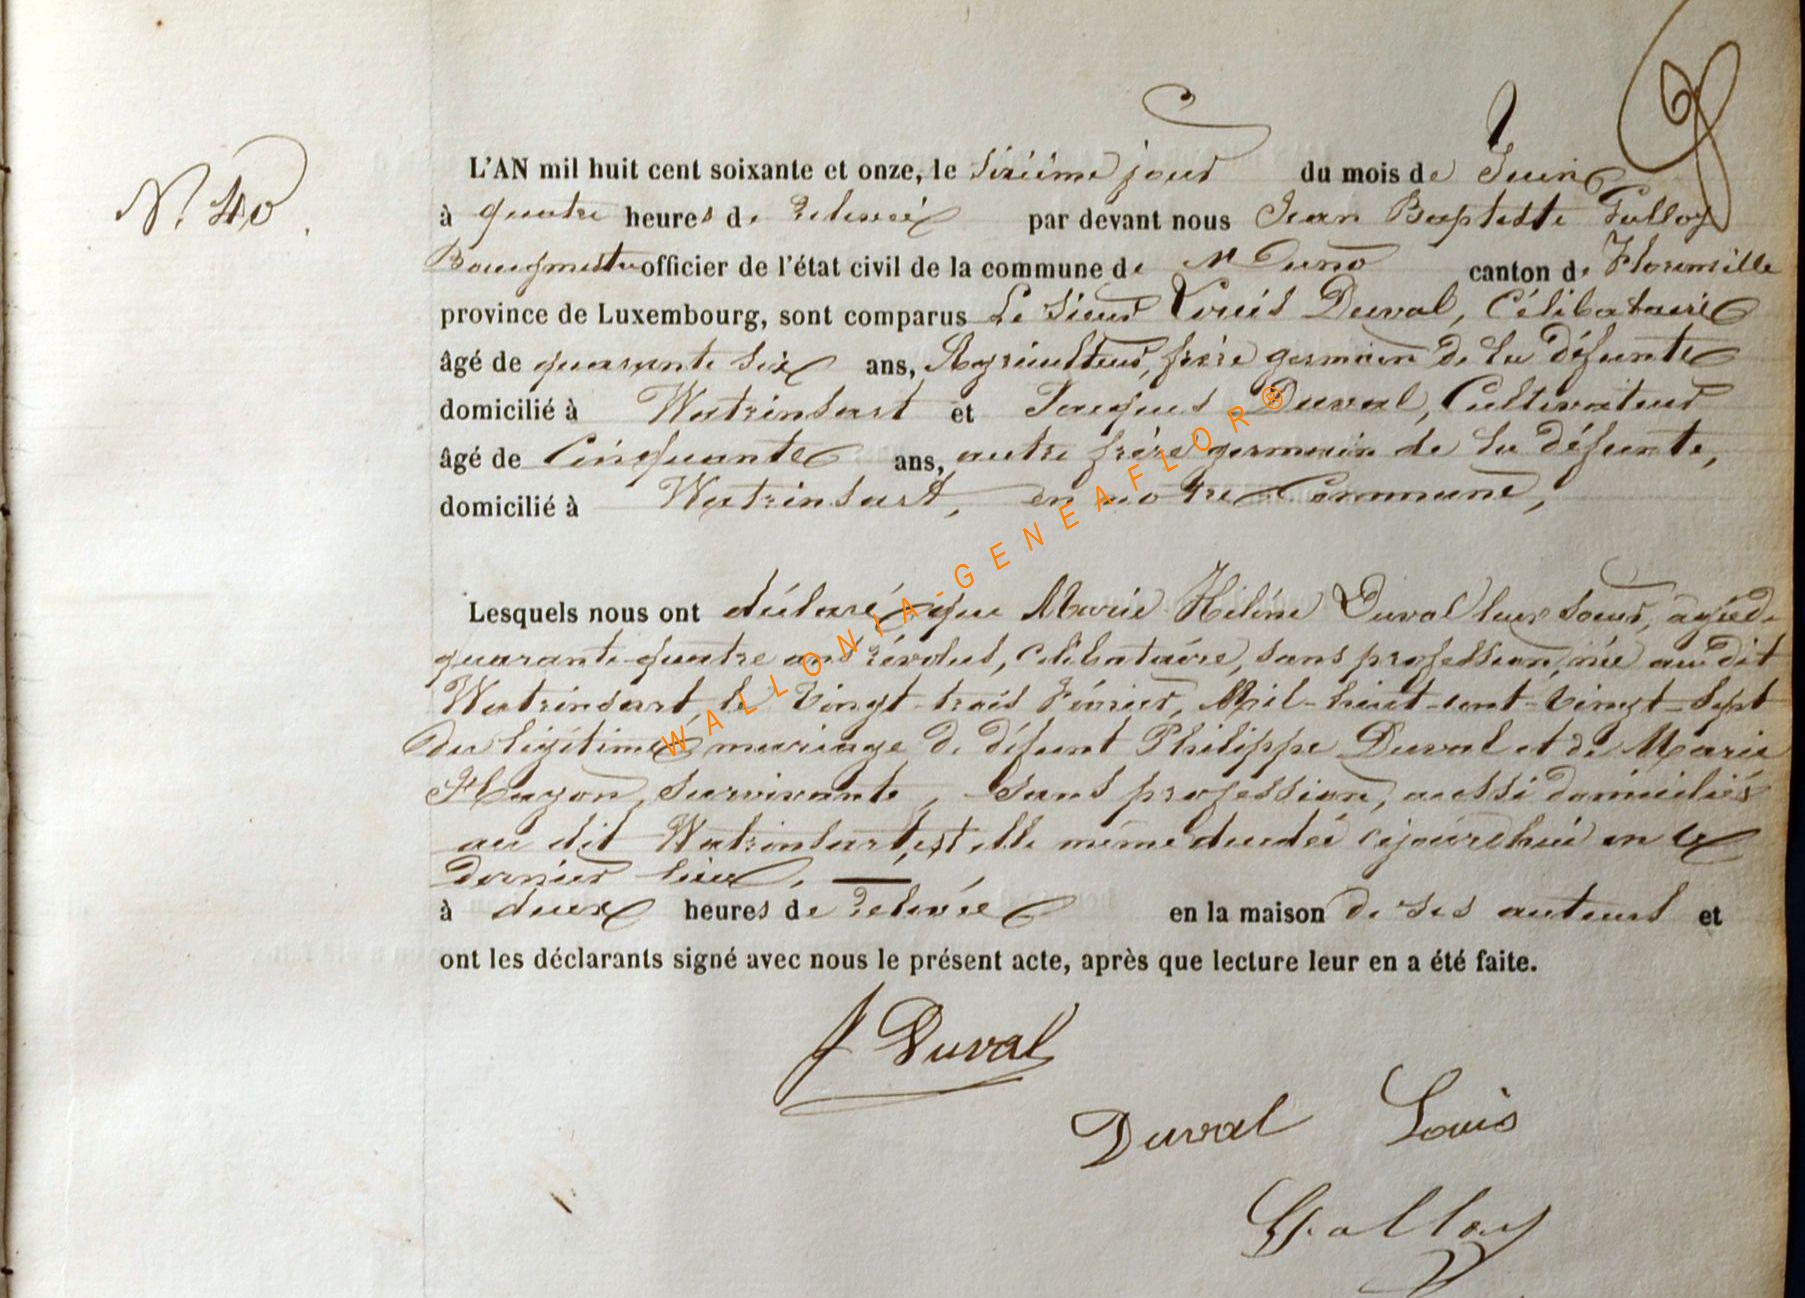 N. 40.
L'AN mil huit cent soixante et onze, le sixième jour du mois de Juin
à quatre heures de relevée par devant nous Jean Baptiste Galloy
Bourgmestre officier de l'état civil de la commune de Muno canton de Florenville
province de Luxembourg, sont comparus Le Sieur Louis Duval, Célibataire
âgé de quarante six ans, Agriculteur, frère germain de la défunte
domicilié à Watrinsart et Jacques Duval, Cultivateur
âgé de Cinquante ans, autre frère germain de la défunte,
domicilié à Watrinsart, en notre Commune,
Lesquels nous ont déclaré que Marie Hélène Duval leur soeur, agée de
quarante-quatre ans révolus, célibataire, sans profession, née au dit
Watrinsart le Vingt-trois Février, Mil-huit-cent-Vingt-Sept
du légitime mariage de défunt Philippe Duval et de Marie
Hazon, survivante, sans profession, aussi domiciliés
au dit Watrinsart, est elle même décédée cejourd'hui en ce
dernier lieu.
à deux heures de relevée en la maison de ses auteurs et
ont les déclarants signé avec nous le présent acte, après que lecture leur en a été faite.
J Duval
Duval Louis
Galloy
WALLONIA-GENEAFLOR®